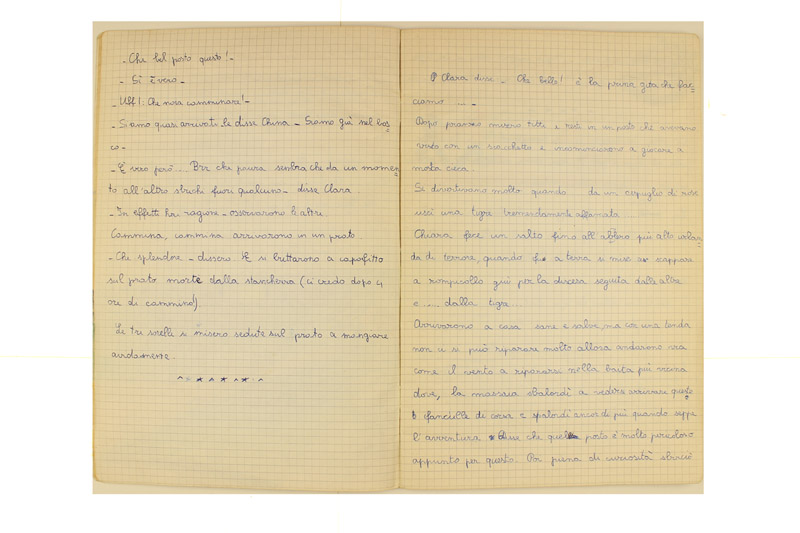 - Che bel posto questo! -
- Sì è vero -
- Uff!: Che nora camminare! -
- Siamo quasi arrivati le disse Chiara - Siamo già nel bos-
co -
- È vero però.... Brr che paura sembra che da un momen-
to all'altro sbuchi fuori qualcuno - disse Clara.
- In effetti hai ragione - osservarono le altre
Cammina, cammina arrivarono in un prato.
- Che splendore - dissero. E si buttarono a capofitto
sul prato morte dalla stanchezza (ci credo dopo 4
ore di cammino).
Le tre sorelle si misero sedute sul prato a mangiare
avidamente.
Clara disse - Che bello! è la prima gita che fac-
ciamo ... -
Dopo pranzo misero tutti i resti in un posto che avevano
con un sacchetto e incominciarono a giocare a
mosca cieca.
Si divertivano molto quando da un cespuglio di rose
uscì una tigre tremendamente affamata
Chiara fece un salto fino all'albero più alto urlan-
do di terrore, quando fu a terra si mise a scappare
a rompicollo giù per la discesa seguita dalle altre
e .... dalla tigre.
Arrivarono a casa sane e salve, ma con una tenda
non ci si può riparare molto allora andarono via
come il vento a ripararsi nella baita più vicina
dove, la massaia sbalordì a vedersi arrivare quelle
fanciulle di corsa e sbalordì ancor di più quando seppe
l'avventura. Disse che quel posto è molto pericoloso
appunto per questo. Poi piena di curiosità sbirciò